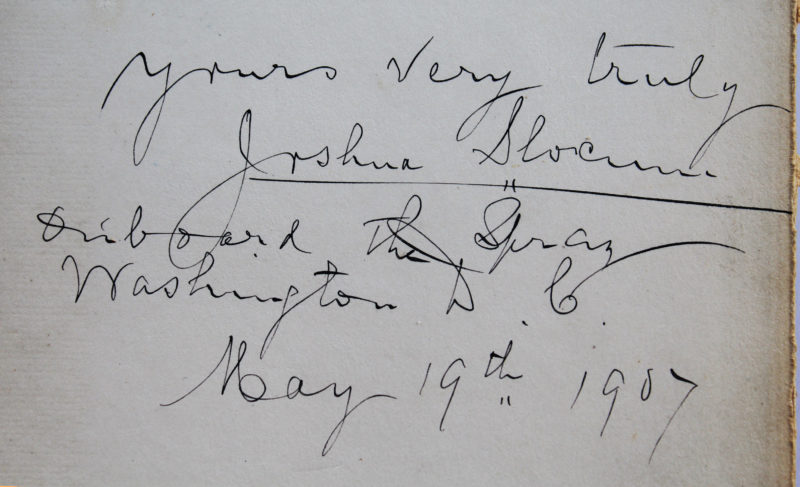 yours very truly
Joshua Slocum
Onboard the "Spray
Washington D. C.
May 19th 1907